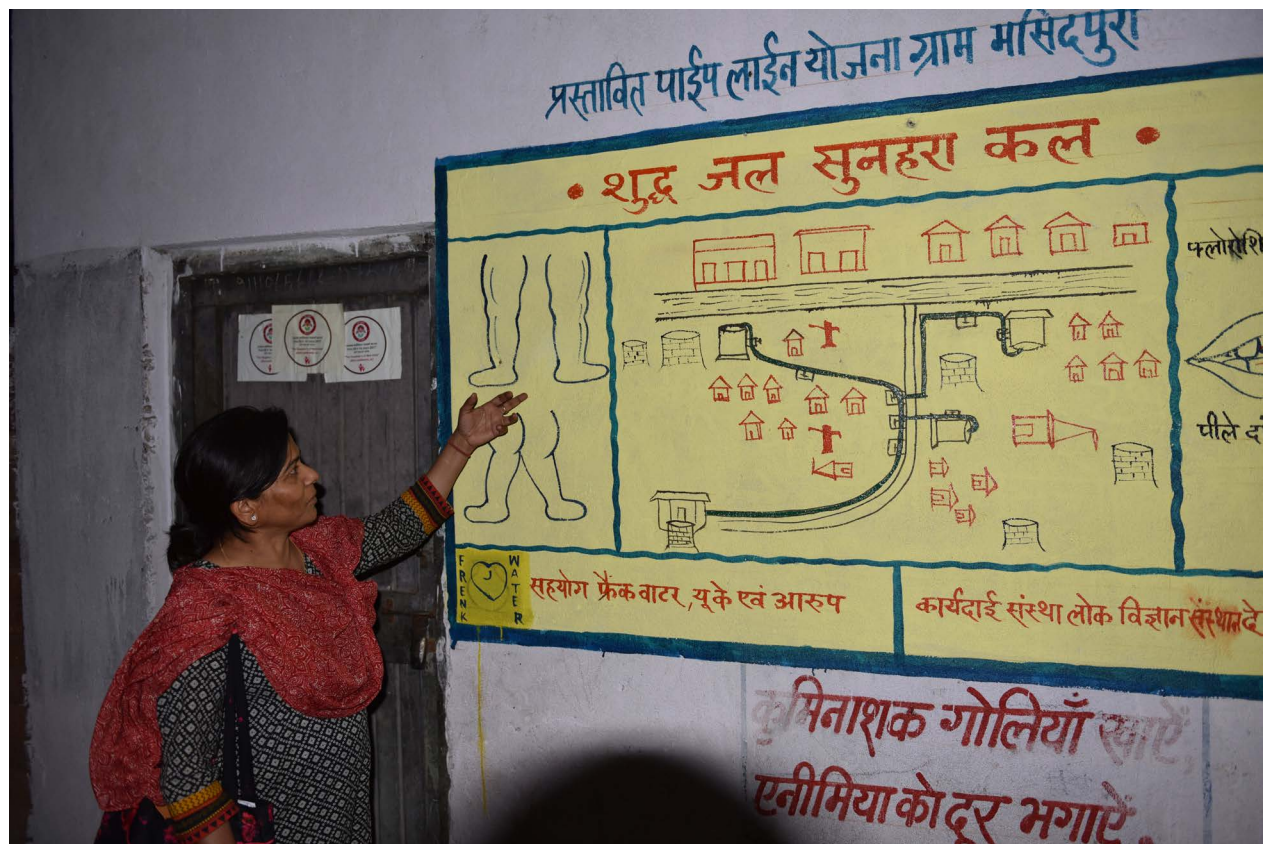 प्रस्तावित पाईप लाईन योजना ग्राम मसिदपुरा
• शुद्ध जल सुनहरा कल •
पीले
FRENK WATER
J
सहयोग फ्रैंक वाटर, यू के एवं आरुप
कार्यदाई संस्था लोक विज्ञान संस्थान दे
कृमिनाशक गोलियाँ खाऐं,
एनीमिया को दूर भगाऐं.